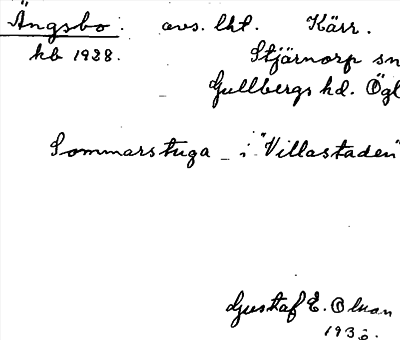 Ängsbo. avs. lht. Kärr.
kb 1928. Stjärnorp sn
Gullbergs hd. Ögl
Sommarstuga i "Villastaden"
Gustaf E. Olson